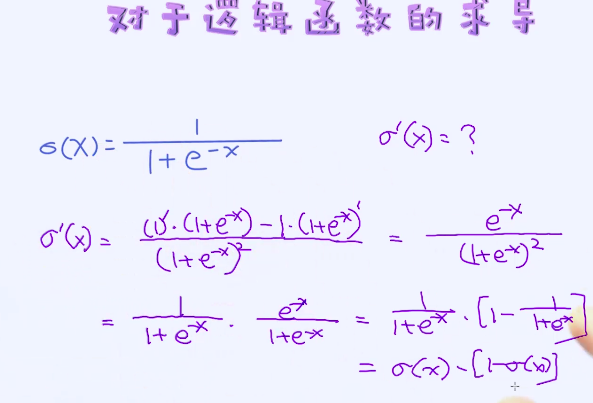 对于逻辑函数的求导
σ(x) = 1 / (1 + e^{-x})    σ'(x) = ?
σ'(x) = ((1)'·(1+e^{-x}) - 1·(1+e^{-x})') / (1+e^{-x})^2 = e^{-x} / (1+e^{-x})^2
= 1 / (1+e^{-x}) · e^{-x} / (1+e^{-x}) = 1 / (1+e^{-x}) · [1 - 1 / (1+e^{-x})]
= σ(x)·[1-σ(x)]